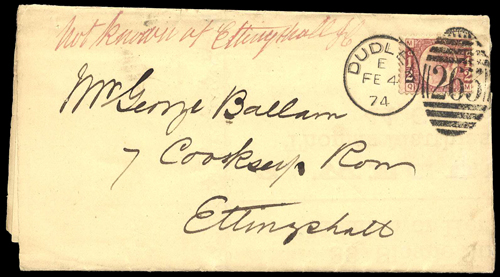 Not known at Ettingshall
DUDLEY
E
FE 4
74
265
Mr George Ballam
7 Cooksey Row
Ettingshall